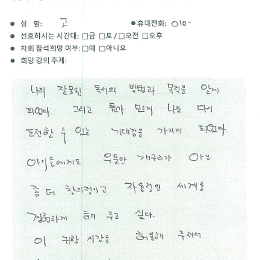 ● 성 함: 고 ● 휴대전화: 010-
● 선호하시는 시간대: □금 □토 / □오전 □오후
● 차회 참석희망 여부: □예 □아니오
● 희망 강의 주제:
나의 잘못된 독서의 방법과 목적을 알게
되었다. 그리고 나도 다시
도전할 수 있는 기대감을 가지게 되었다.
아이들에게도 우물안 개구리가 아닌
좀 더 창의적이고 자율적인 세계를
경험하게 해 주고 싶다.
이 귀한 시간을 허락해 주셔서